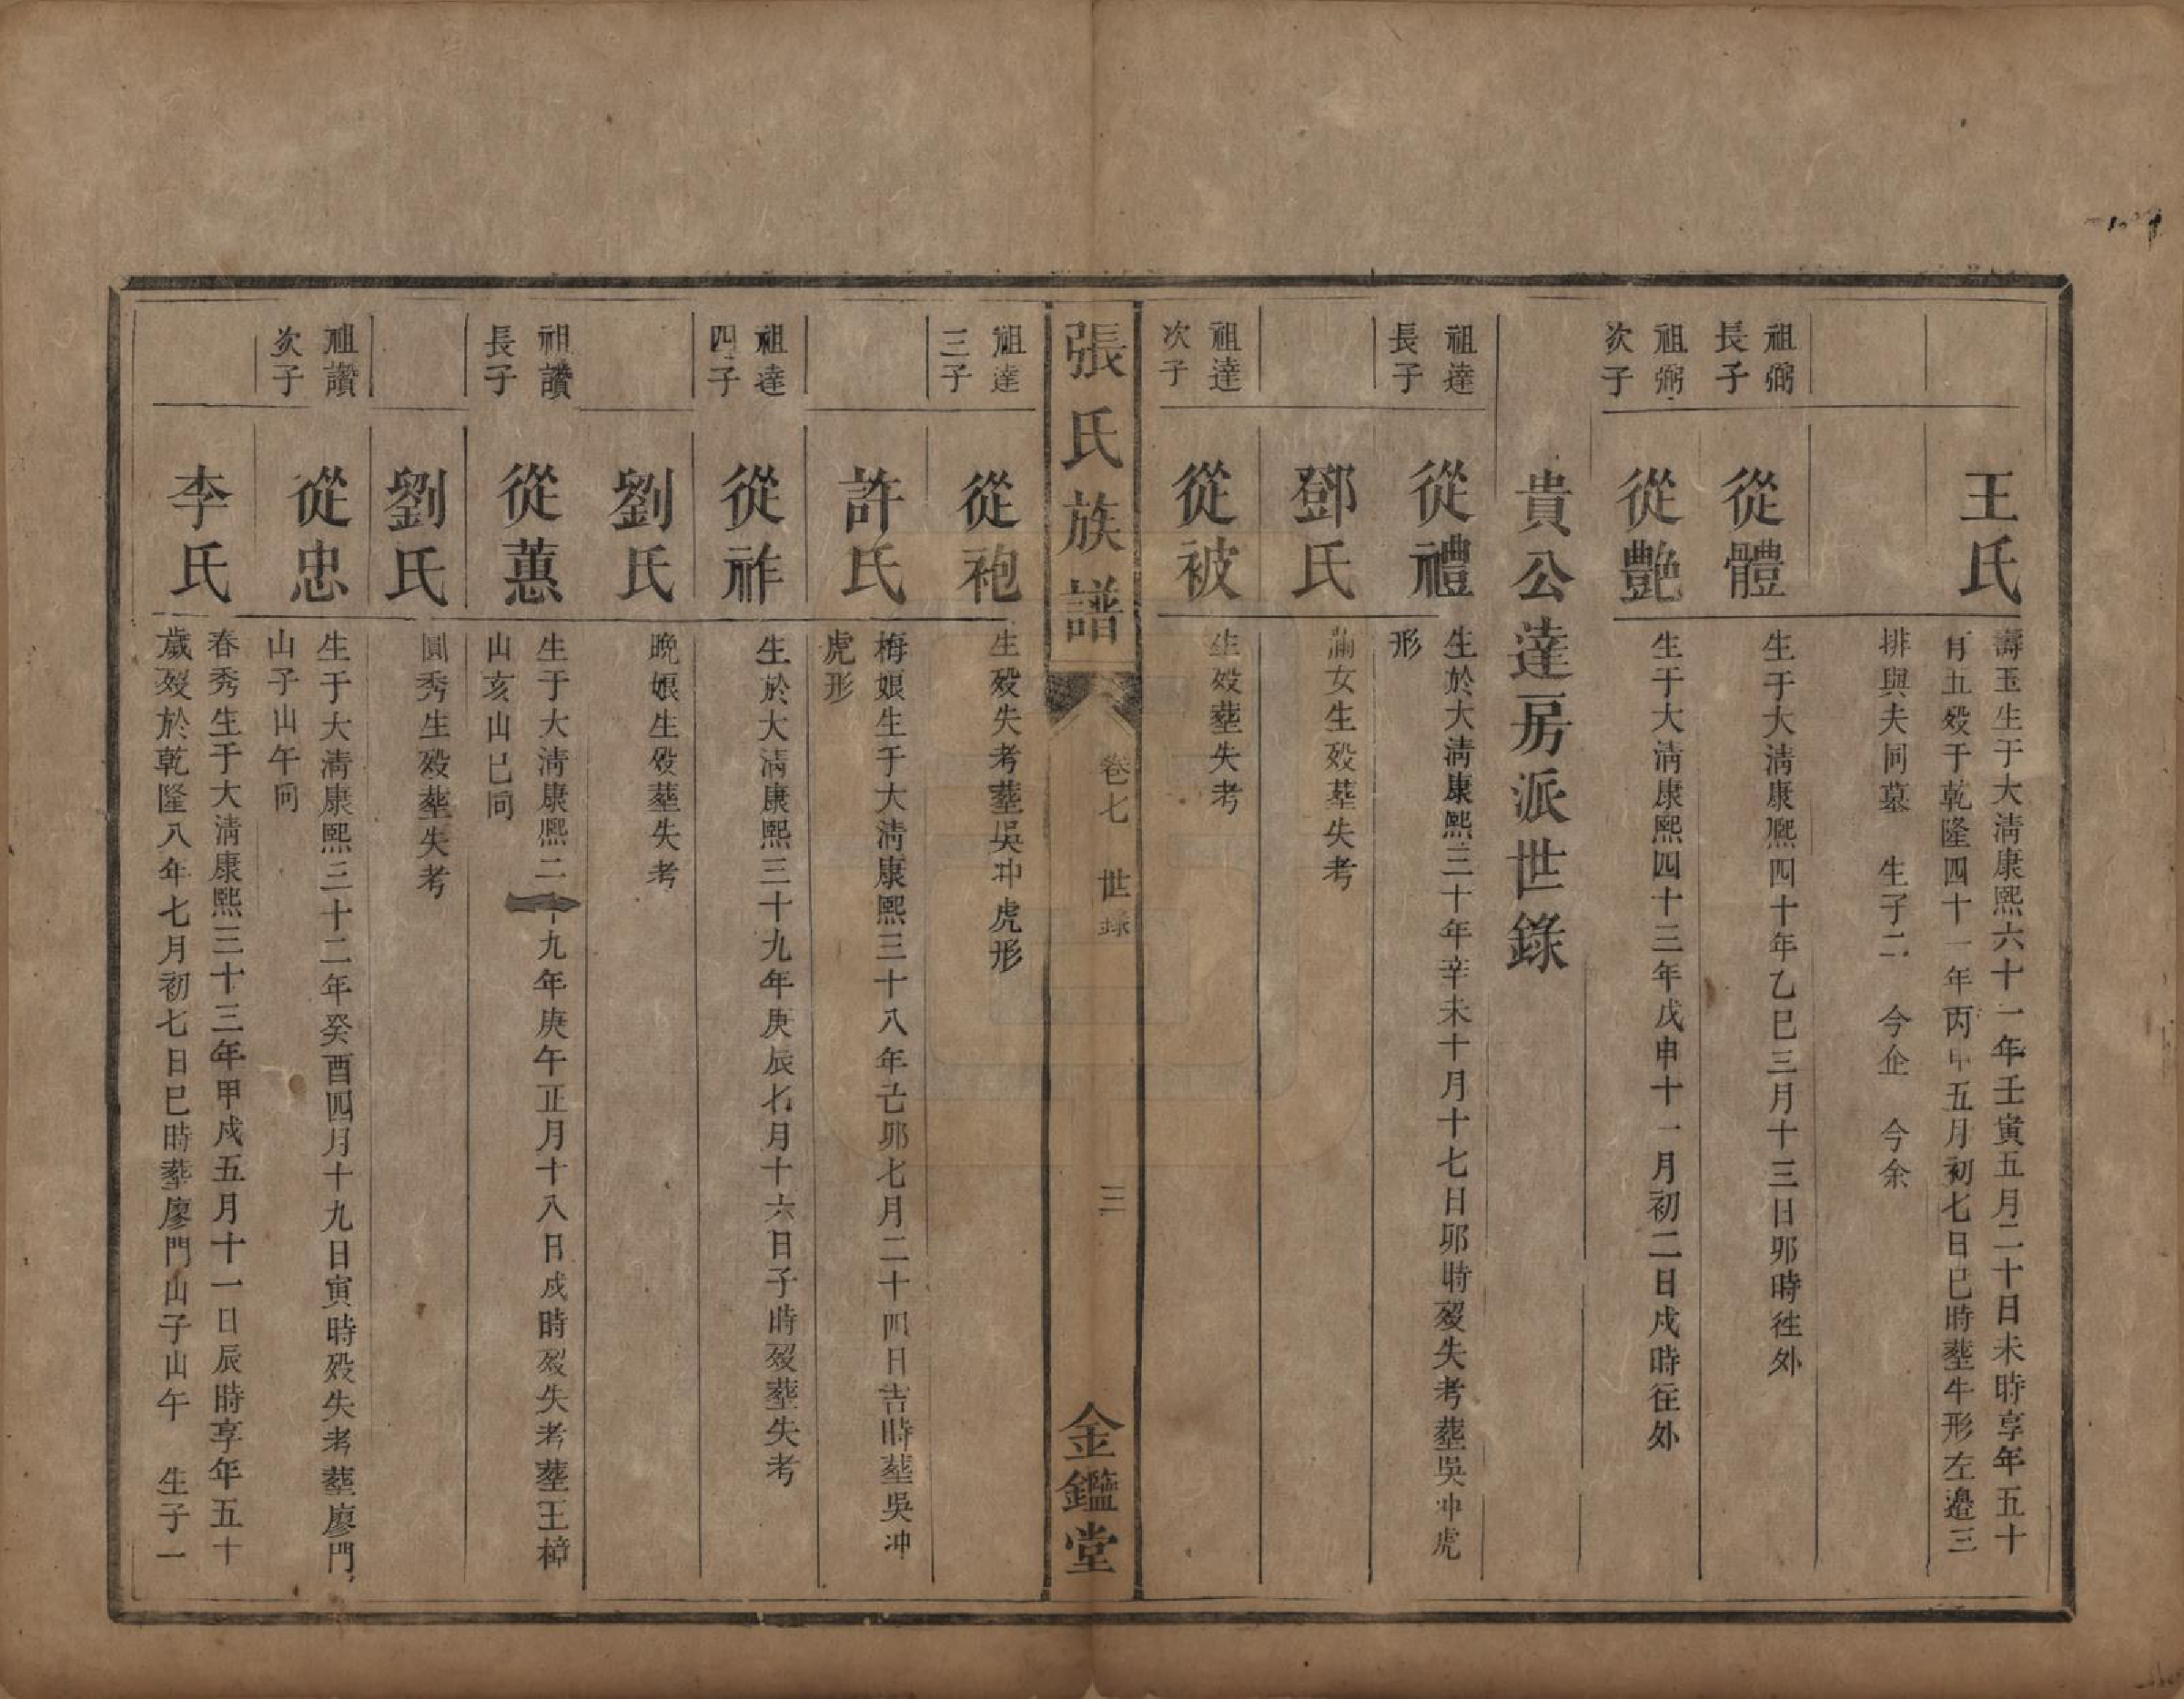 王氏
壽玉生于大淸康熙六十一年壬寅五月二十日未時享年五十
有五歿于乾隆四十一年丙申五月初七日巳時塟牛形左邉三
排與夫同墓　生子二　今企　今余
祖弼
長子
從體
生于大淸康熙四十年乙巳三月十三日卯時徃外
祖弼
次子
從艷
生于大淸康熙四十三年戊申十一月初二日戌時往外
貴公達房派世錄
祖達
長子
從禮
生於大淸康熙三十年辛未十月十七日卯時歿失考塟吳冲虎
形
鄧氏
滿女生歿塟失考
祖達
次子
從被
生歿塟失考
張氏族譜
卷七　世錄
三
金鑑堂
祖達
三子
從袍
生歿失考塟吳冲虎形
許氏
梅娘生于大淸康熙三十八年己卯七月二十四日吉時塟吳冲
虎形
祖達
四子
從祚
生於大淸康熙三十九年庚辰九月十六日子時歿塟失考
劉氏
晩娘生歿塟失考
祖讚
長子
從蕙
生于大淸康熙二十九年庚午正月十八日戌時歿失考塟王樟
山亥山巳同
劉氏
圓秀生歿塟失考
祖讚
次子
從忠
生于大淸康熙三十二年癸酉四月十九日寅時歿失考塟廖門
山子山午同
李氏
春秀生于大淸康熙三十三年甲戌五月十一日辰時享年五十
歲歿於乾隆八年七月初七日巳時塟廖門山子山午　生子一